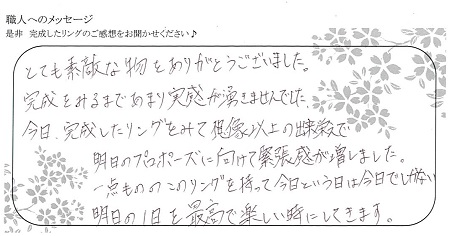 職人へのメッセージ
是非 完成したリングのご感想をお聞かせください♪
とても素敵な物をありがとうございました。
完成をみるまであまり実感が湧きませんでした。
今日、完成したリングをみて想像以上の出来栄えで
明日のプロポーズに向けて緊張感が増しました。
一点もののこのリングを持って今日という日は今日でしかない
明日の1日を最高で楽しい時にしてきます。